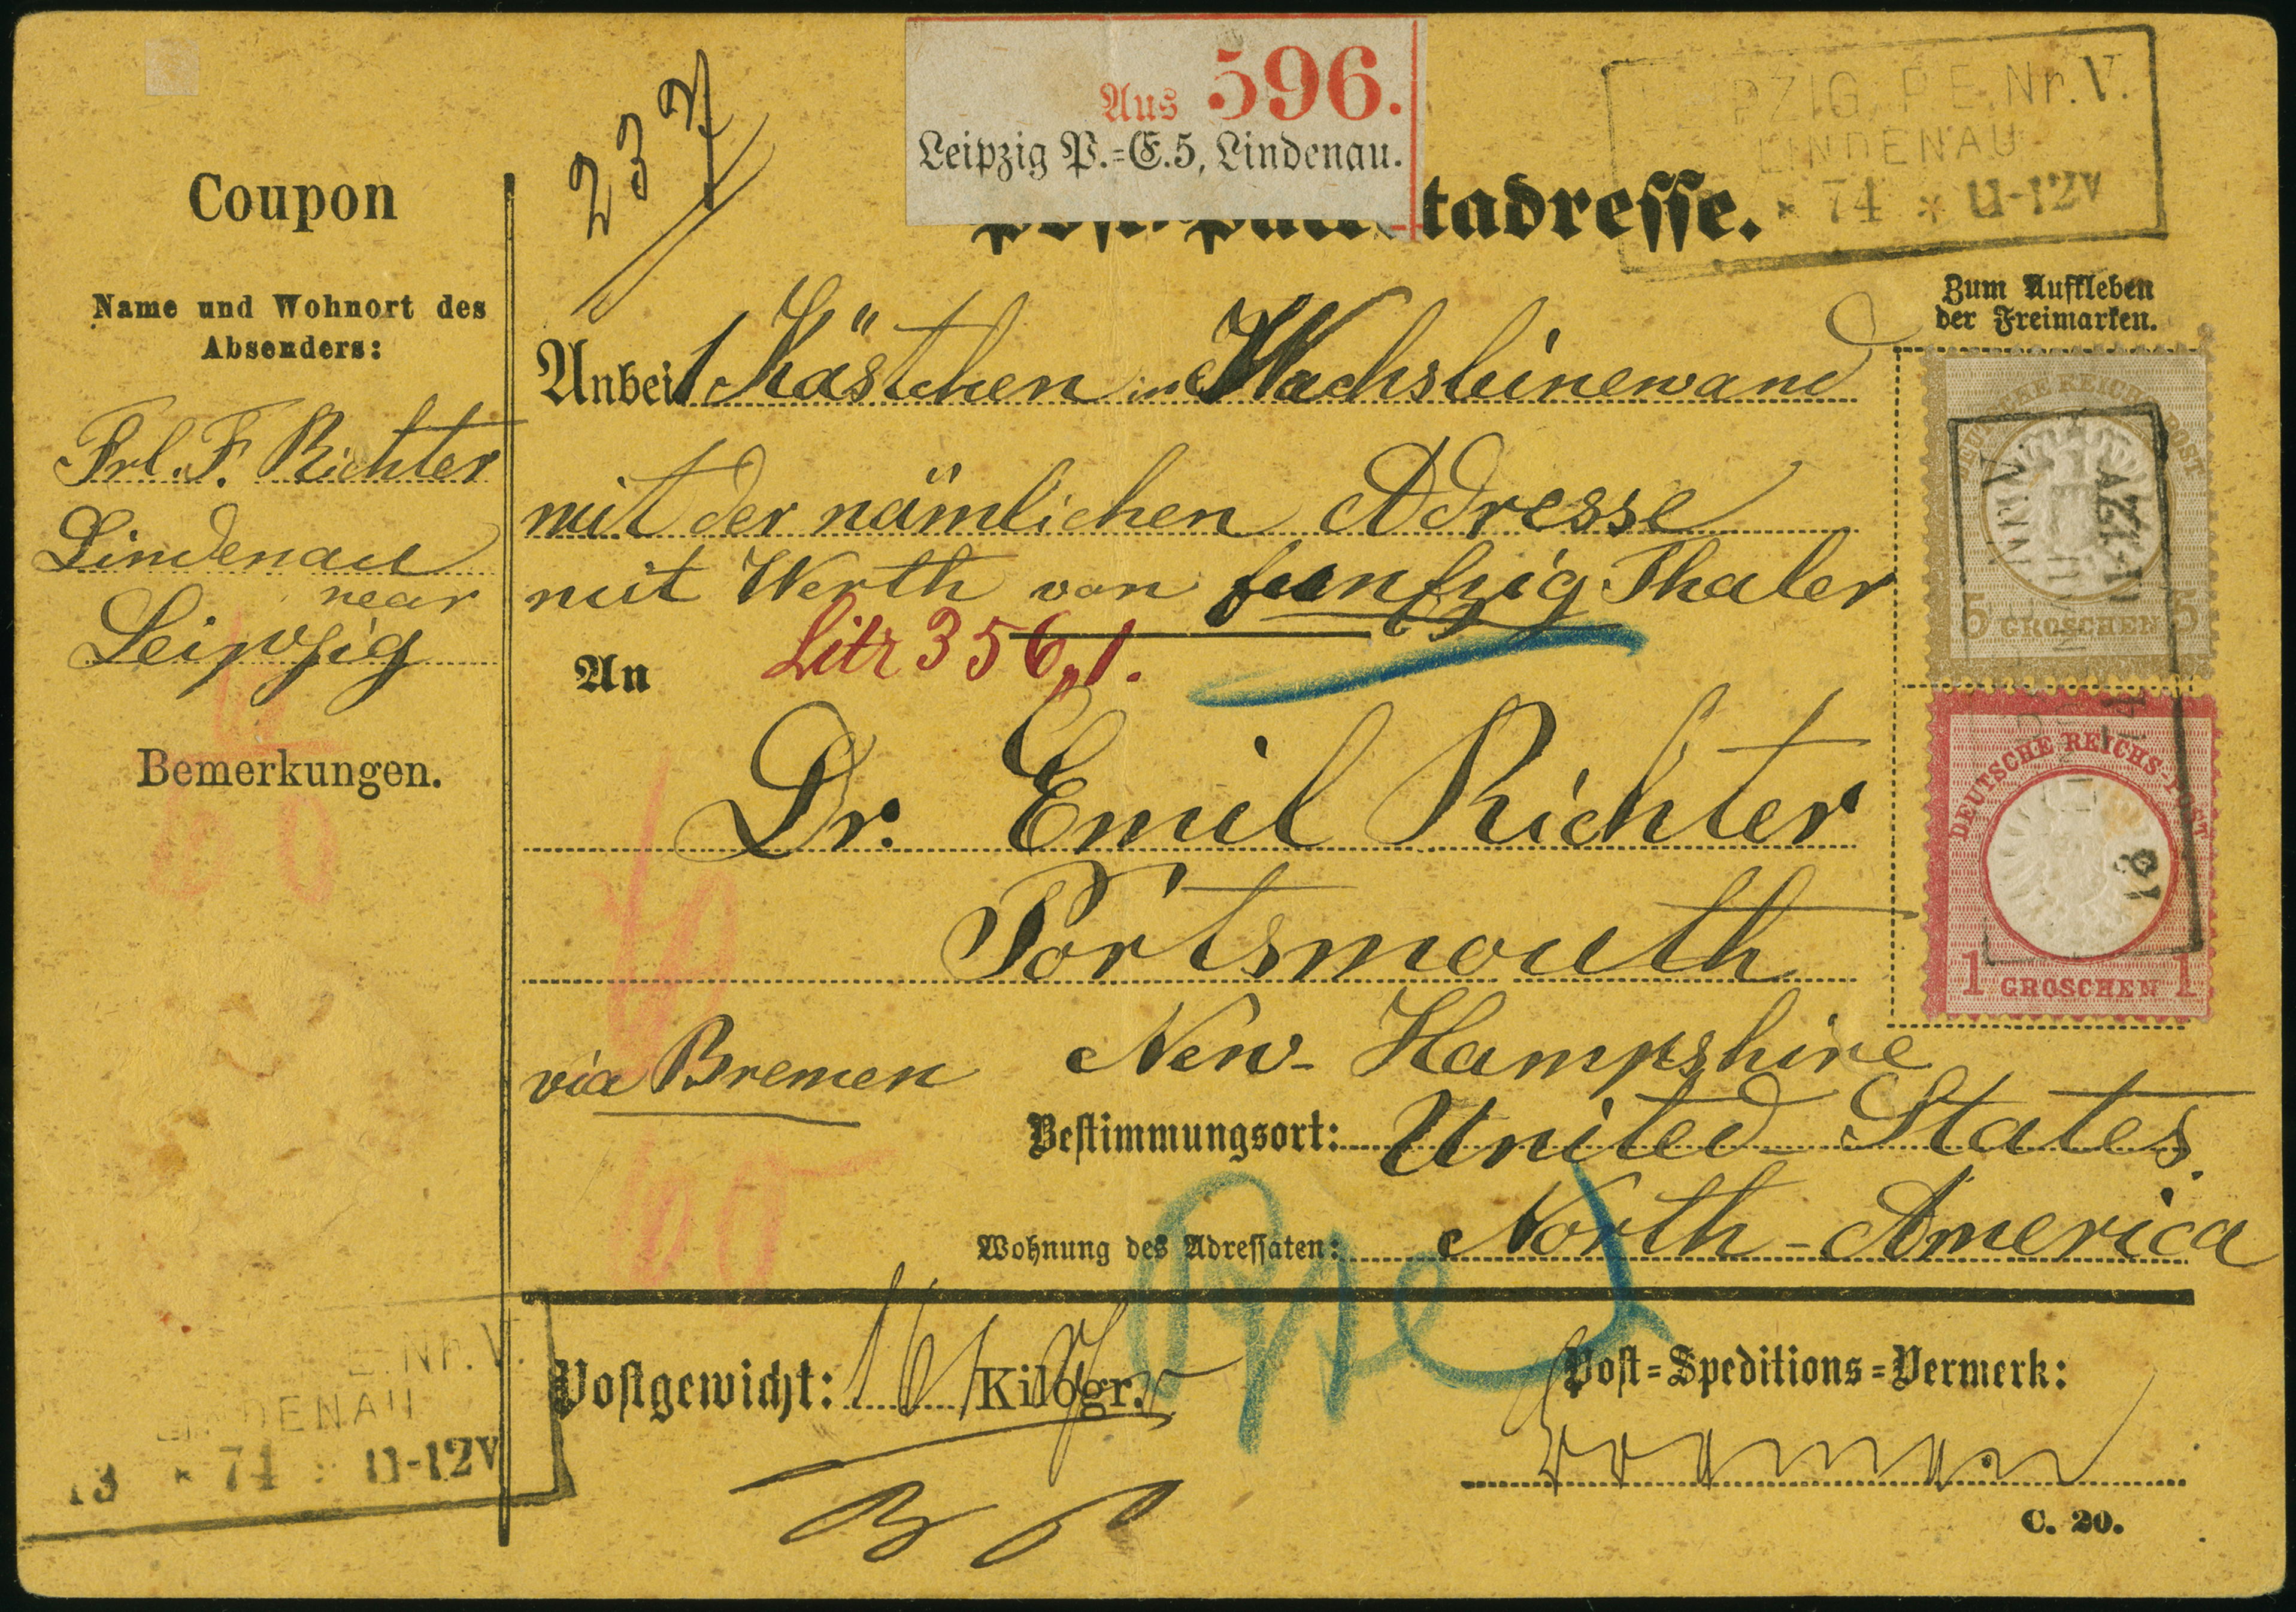 Coupon
Name und Wohnort des
Absenders:
Frl. F. Richter
Lindenau
near
Leipzig
Bemerkungen.
237
Aus 596.
Leipzig P.=E.5, Lindenau.
tadresse.
PZIG P.E.Nr.V.
LINDENAU
* 74 * 11-12V
Zum Aufkleben
der Freimarken.
Anbei 1 Kästchen in Wachsleinewand
mit der nämlichen Adresse
mit Werth von funfzig Thaler
An
356
Dr. Emil Richter
Portsmouth
via Bremen
New-Hampshire
Bestimmungsort: United States.
Wohnung des Adressaten: North-America
DEUTSCHE REICHS-POST
5 GROSCHEN 5
DEUTSCHE REICHS-POST
1 GROSCHEN 1
E.Nr.V.
LINDENAU
13 * 74 11-12V
Postgewicht: Kilogr.
Post=Speditions=Vermerk:
C. 20.